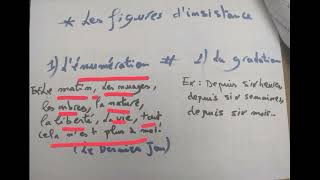 * Les figures d'insistance
1) L'énumération # 2) La gradation
Ex: Le matin, les nuages,
les arbres, la nature,
la liberté, la vie, tout
cela n'est plus à moi.
(Le Dernier Jour)
Ex: Depuis six heures,
depuis six semaines,
depuis six mois...